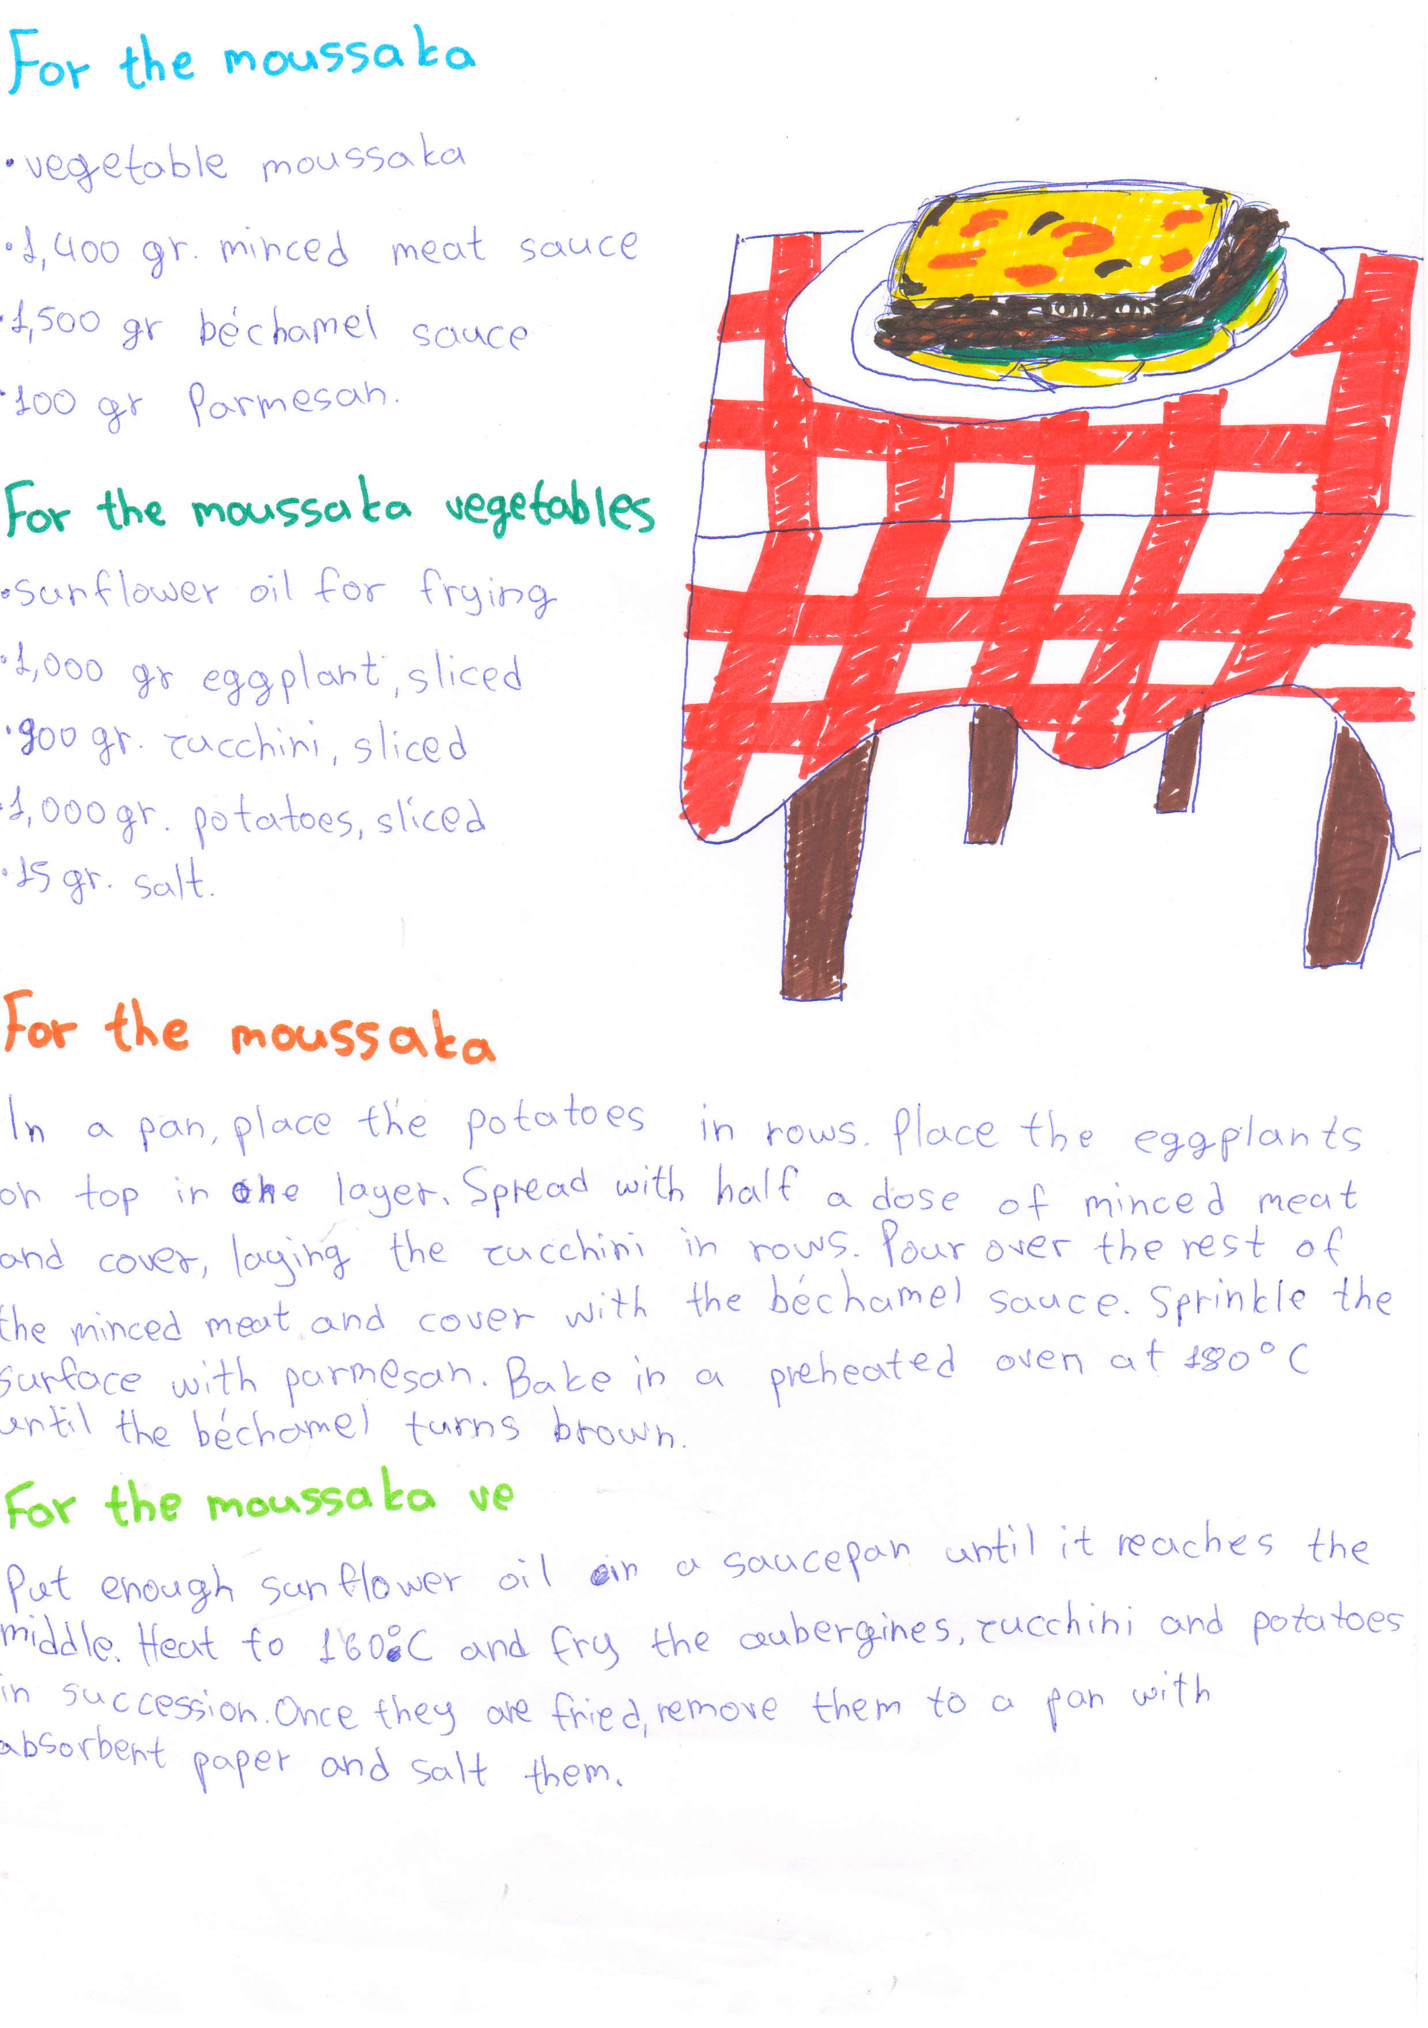 For the moussaka
• vegetable moussaka
• 1,400 gr. minced meat sauce
• 1,500 gr béchamel sauce
• 100 gr Parmesan.
For the moussaka vegetables
• sunflower oil for frying
• 1,000 gr eggplant, sliced
• 900 gr. zucchini, sliced
• 1,000 gr. potatoes, sliced
• 15 gr. salt.
For the moussaka
In a pan, place the potatoes in rows. Place the eggplants
on top in one layer. Spread with half a dose of minced meat
and cover, laying the zucchini in rows. Pour over the rest of
the minced meat and cover with the béchamel sauce. Sprinkle the
surface with parmesan. Bake in a preheated oven at 180°C
until the béchamel turns brown.
For the moussaka ve
Put enough sunflower oil in a saucepan until it reaches the
middle. Heat to 160°C and fry the aubergines, zucchini and potatoes
in succession. Once they are fried, remove them to a pan with
absorbent paper and salt them.